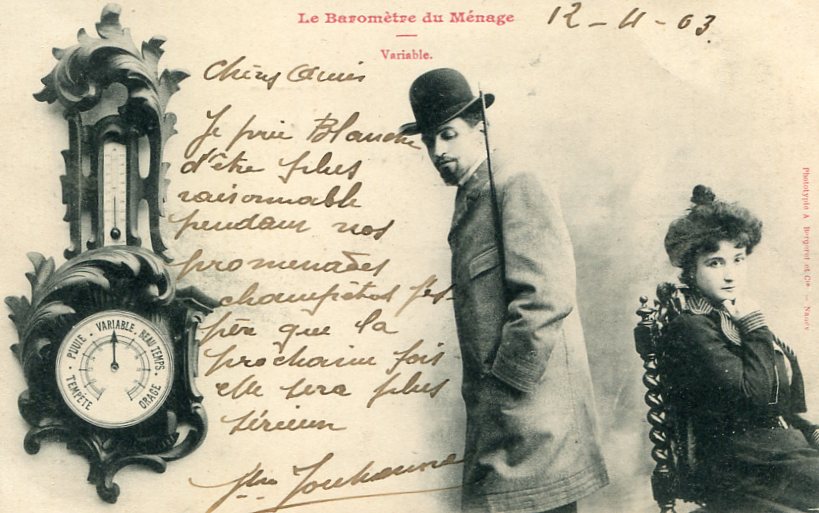 Le Baromètre du Ménage
Variable.
12-4-03
Chers Amis
Je prie Blanche
d'être plus
raisonnable
pendant nos
promenades
champêtres j'es-
père que la
prochaine fois
elle sera plus
sérieuse
TEMPÊTE - PLUIE - VARIABLE - BEAU TEMPS - ORAGE
Phototypie A. Bergeret et Cie - Nancy